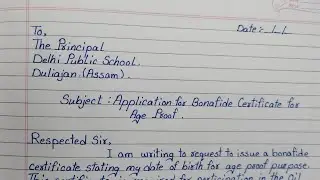 Date:- / /
To,
The Principal
Delhi Public School.
Duliajan (Assam).
Subject : Application for Bonafide Certificate for
Age Proof.
Respected Sir,
I am writing to request to issue a bonafide
certificate stating my date of birth for age proof purpose.
This certificate is required for participation in the Oil